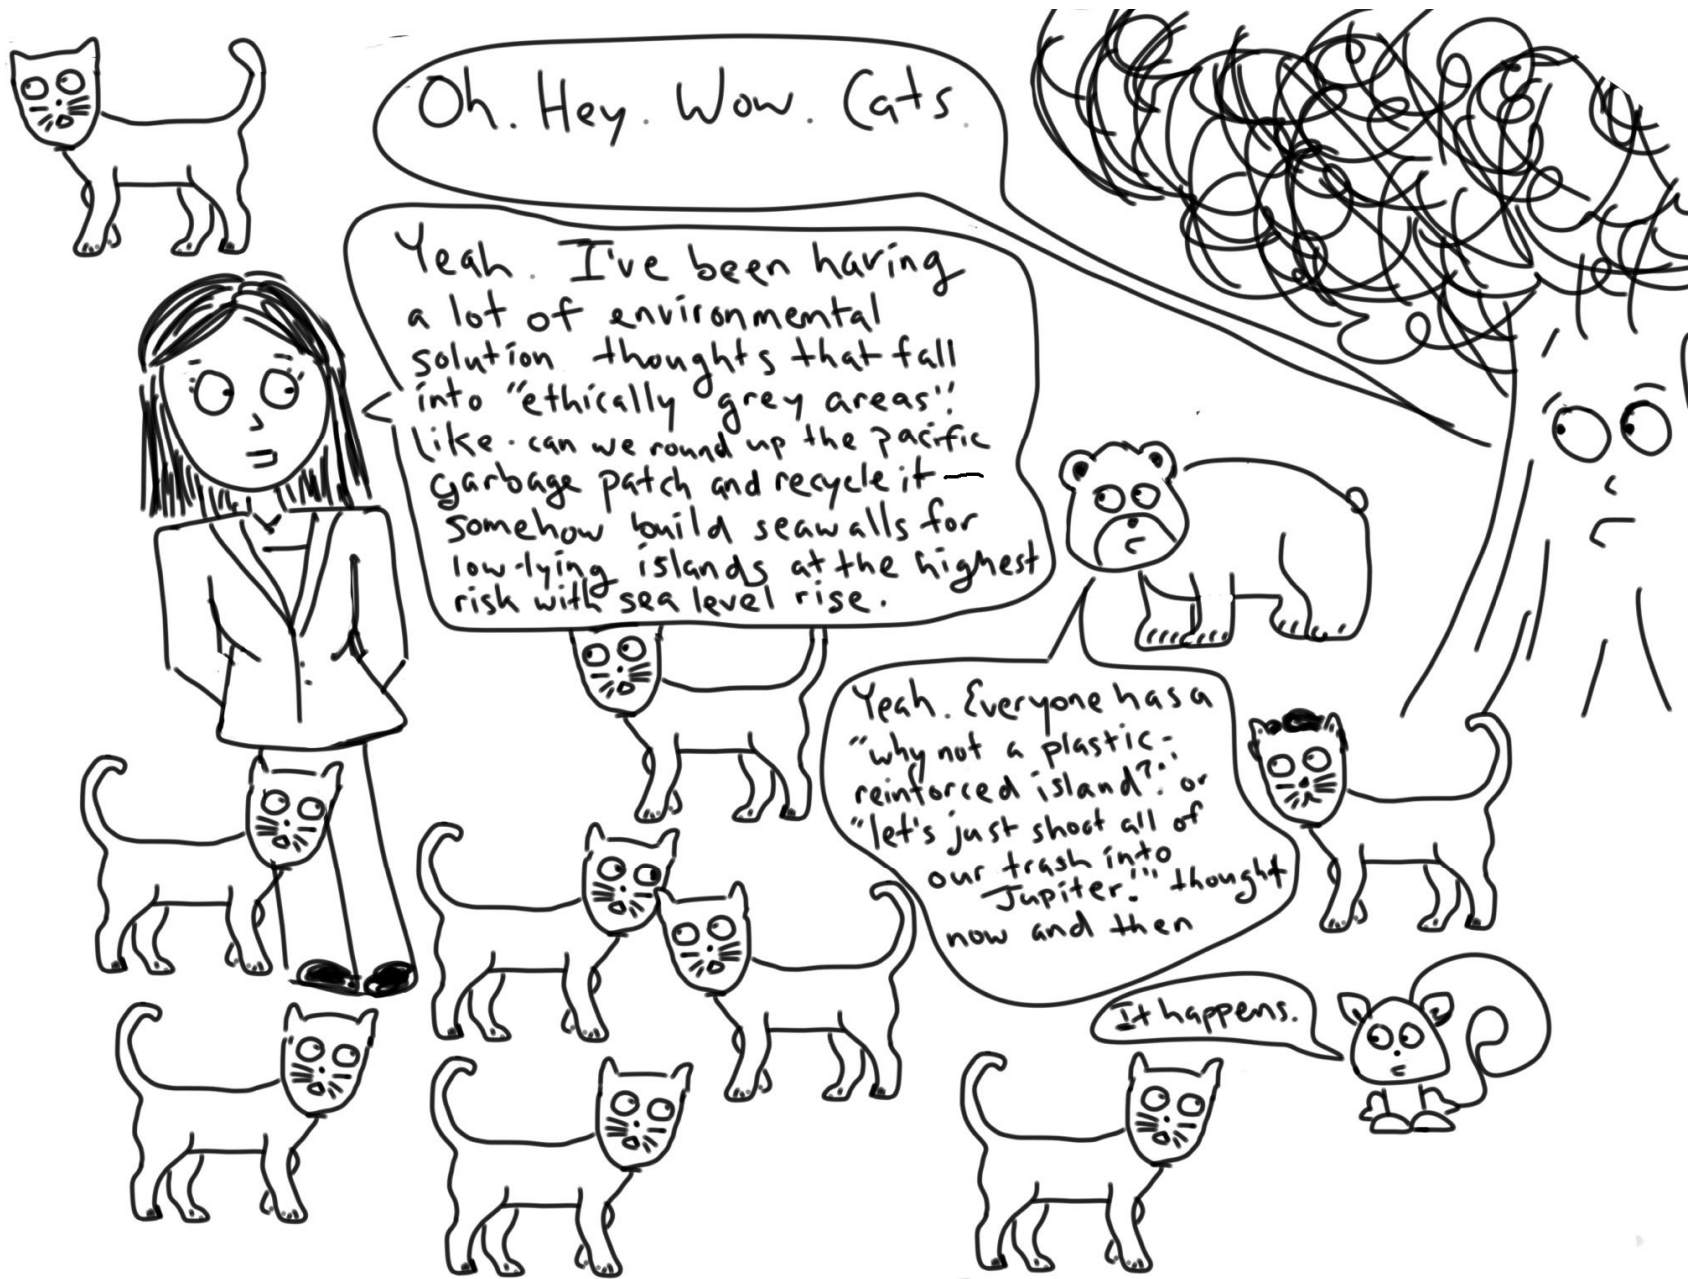 Oh. Hey. Wow. Cats.
Yeah. I've been having
a lot of environmental
solution thoughts that fall
into "ethically grey areas".
Like. can we round up the pacific
garbage patch and recycle it —
somehow build seawalls for
low-lying islands at the highest
risk with sea level rise.
Yeah. Everyone has a
"why not a plastic-
reinforced island?" or
"let's just shoot all of
our trash into
Jupiter!" thought
now and then
It happens.